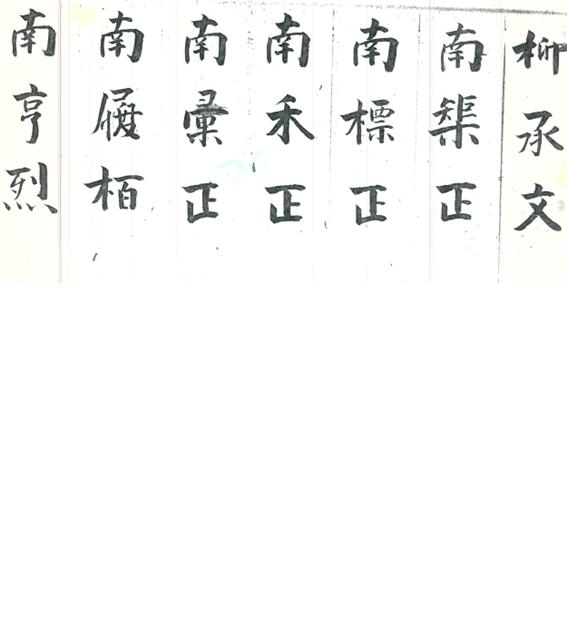 柳承文
南榘正
南標正
南禾正
南彙正
南栢
南亨烈